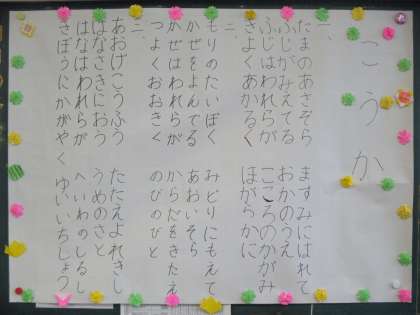 こうか
一、
たまのあさぞら ますみにはれて
ふじがみえてる おかのうえ
ふじはわれらが こころのかがみ
きよくあかるく ほがらかに
二、
もりのたいぼく みどりにもえて
かぜをよんでる あおいそら
かぜはわれらが からだをきたえ
つよくおおきく のびのびと
三、
あおげこうふう たたえよれきし
はなさきにおう うめのさと
はなはわれらが へいわのしるし
きぼうにかがやく ゆいいちしょう